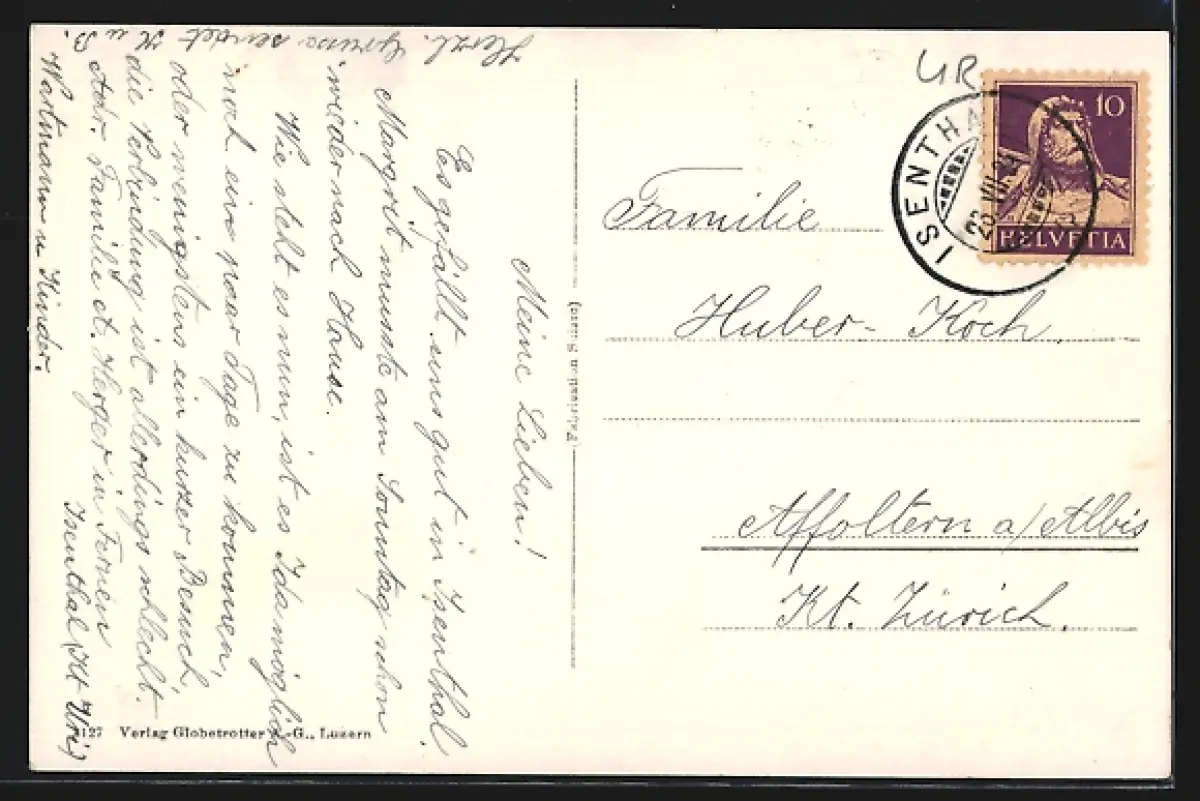 Meine Lieben!
Es gefällt uns gut in Isenthal.
Margrit musste am Sonntag schon
wieder nach Hause.
Wie steht es nun, ist es Ida möglich
noch ein paar Tage zu kommen,
oder wenigstens ein kurzer Besuch,
die Verbindung ist allerdings schlecht.
Adr. Familie
Herger in
Isenthal (Kt. Uri)
Herzl. Grüsse sendet H u B.
Wartmann u Kinder.
UR
ISENTHA
23.VII.
10
HELVETIA
Familie
Huber-Koch,
Affoltern a/Albis
Kt. Zürich.
127 Verlag Globetrotter A.-G., Luzern